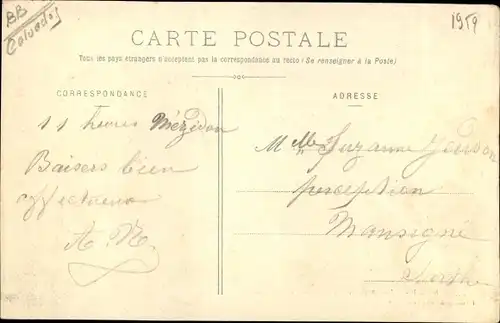 BB
Calvados
1959
CARTE POSTALE
Tous les pays étrangers n'acceptent pas la correspondance au recto (Se renseigner à la Poste)
CORRESPONDANCE
ADRESSE
11 heures Mézidon
Baisers bien
affectueux
Mlle Suzanne
perception
Mansigné
Sarthe